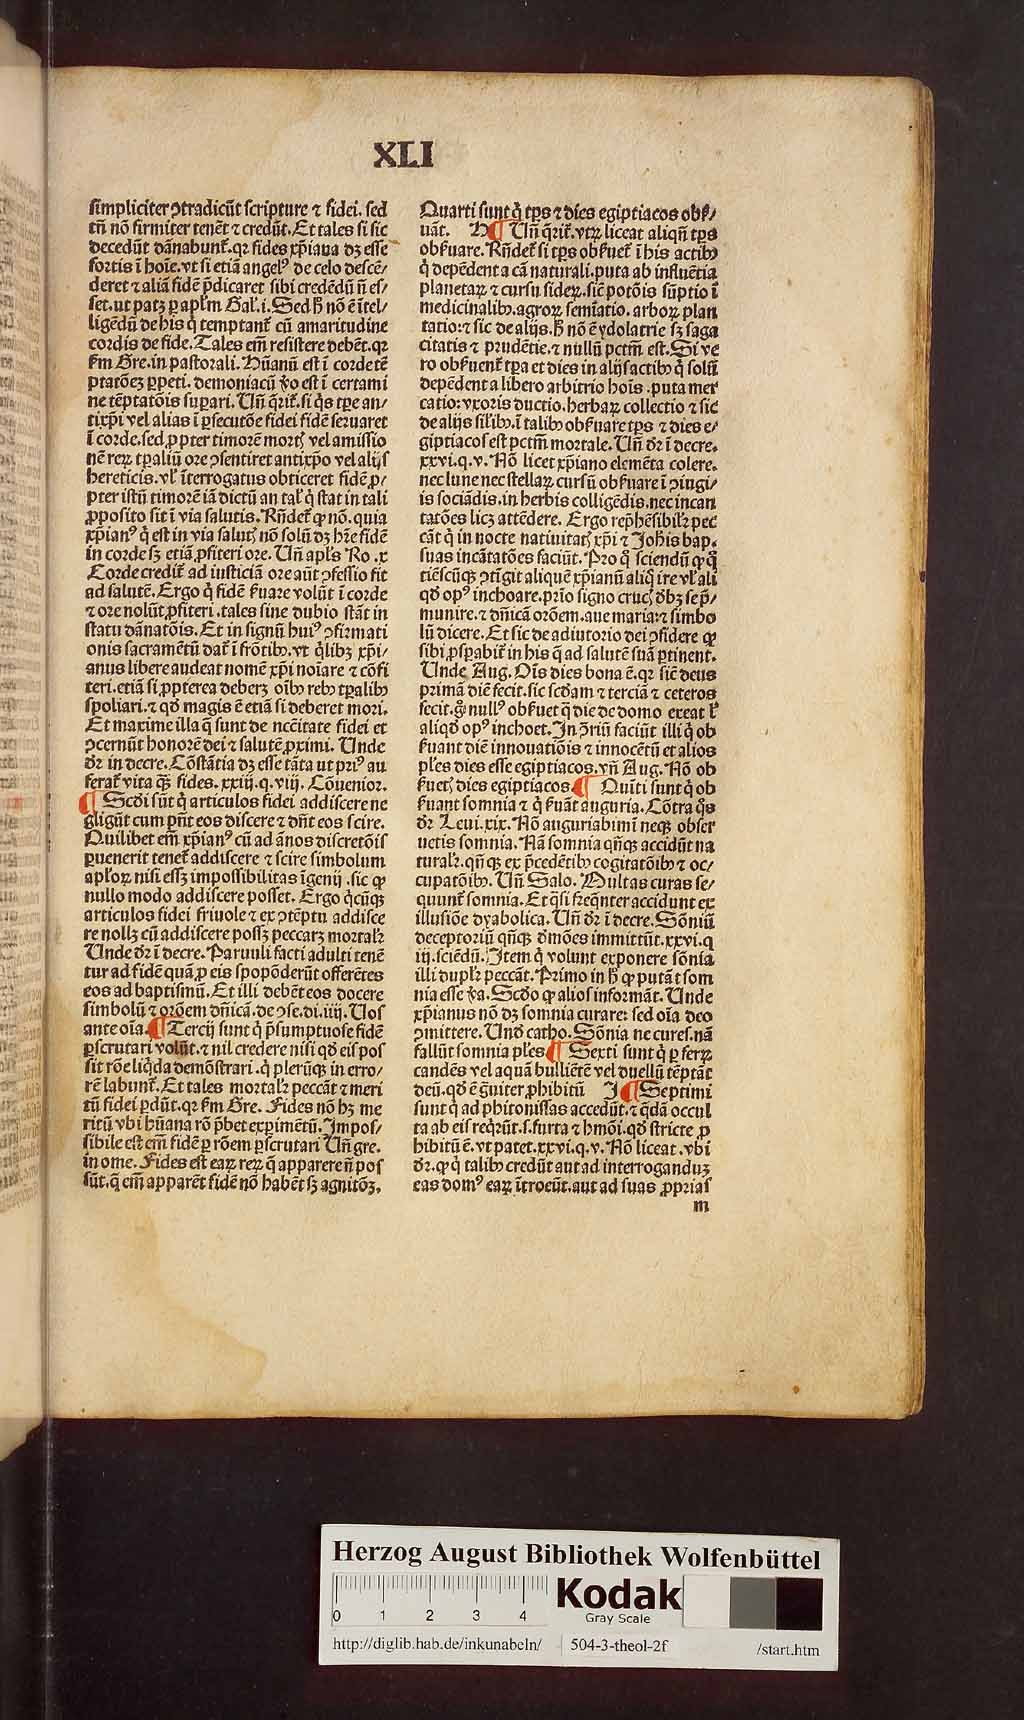 XLI
simpliciter ↄtradicūt scripture ⁊ fidei. sed
tn̄ nō firmiter tenēt ⁊ credūt. Et tales si sic
decedūt dānabunt᷑. qꝛ fides xp̄iana dꝫ esse
fortis ī hoīe. vt si etiā angelꝰ de celo descē⸗
deret ⁊ aliā fidē p̄dicaret sibi credēdū n̄ es⸗
set. ut patꝫ ꝑ apl̄m Gal̓. i. Sed h̄ nō ē ītel⸗
ligēdū de his q̇ temptant᷑ cū amaritudine
cordis de fide. Tales em̄ resistere debēt. qꝛ
ẜm Gre. in pastorali. Hūanū est ī corde tē
ptatōeꝫ ꝑpeti. demoniacū ꝟo est ī certami
ne tēptatōis suꝑari. Un̄ q̄rit᷑. si q̇s tꝑe an⸗
tixp̄i vel alias ī ꝑsecutōe fidei fidē seruaret
ī corde. sed ꝓpter timorē mortꝭ vel amissio
nē reꝝ tꝑaliū ore ↄsentiret antixp̄o vel alijs
hereticis. vl̓ īterrogatus obticeret fidē ꝓ⸗
pter istū timorē iā dictū an tal̓ q̇ stat in tali
ꝓposito sit ī via salutis. Rn̄det᷑ ꝙ nō. quia
xp̄ianꝰ q̇ est in via salutꝭ nō solū dꝫ hr̄e fidē
in corde sꝫ etiā ꝓfiteri ore. Un̄ apl̓s Ro. x
Corde credit᷑ ad iusticiā ore aūt ↄfessio fit
ad salutē. Ergo q̇ fidē ẜuare volūt ī corde
⁊ ore nolūt ꝓfiteri. tales sine dubio stāt in
statu dānatōis. Et in signū huiꝰ ↄfirmati
onis sacramētū dat᷑ ī frōtibꝫ. vt q̇libꝫ xp̄i⸗
anus libere audeat nomē xp̄i noīare ⁊ cōfi
teri. etiā si ꝓpterea deberꝫ oībꝫ rebꝫ tꝑalibꝫ
spoliari. ⁊ qd̓ magis ē etiā si deberet mori.
Et maxime illa q̄ sunt de nccītate fidei et
ↄcernūt honorē dei ⁊ salutē ꝓximi. Unde
dr̄ in decre. Cōstātia dꝫ esse tāta ut priꝰ au
ferat᷑ vita q̄ꝫ fides. xxiij. q. viij. Cōuenior.
¶ Scd̓i sūt q̇ articulos fidei addiscere ne
gligūt cum pn̄t eos discere ⁊ dn̄t eos scire.
Quilibet em̄ xp̄ianꝰ cū ad ānos discretōis
ꝑuenerit tenet᷑ addiscere ⁊ scire simbolum
apl̓oꝝ nisi essꝫ impossibilitas īgenij. sic ꝙ
nullo modo addiscere posset. Ergo q̇cūqꝫ
articulos fidei friuole ⁊ ex ↄtēptu addisce
re nollꝫ cū addiscere possꝫ peccarꝫ mortal̓r
Unde dr̄ ī decre. Paruuli facti adulti tenē
tur ad fidē quā ꝓ eis spopōderūt offerētes
eos ad baptismū. Et illi debēt eos docere
simbolū ⁊ orōem dn̄icā. de ↄse. di. iiij. Uos
ante oīa. ¶ Tercij sunt q̇ p̄sumptuose fidē
ꝑscrutari volūt. ⁊ nil credere nisi qd̓ eis pos
sit rōe liq̇da demōstrari. q̇ plerūqꝫ in erro⸗
rē labunt᷑. Et tales mortal̓r peccāt ⁊ meri
tū fidei ꝑdūt. qꝛ ẜm Gre. Fides nō hꝫ me
ritū vbi hūana rō p̄bet exꝑimētū. Impos⸗
sibile est em̄ fidē ꝑ rōem ꝑscrutari Un̄ gre.
in ome. Fides est eaꝝ reꝝ q̄ apparere n̄ pos
sūt. q̄ em̄ apparēt fidē nō habēt sꝫ agnitōꝫ.
Quarti sunt q̇ tp̄s ⁊ dies egiptiacos obẜ⸗
uāt. H ¶ Un̄ q̄rit᷑. vtꝝ liceat aliqn̄ tp̄s
obẜuare. Rn̄det᷑ si tp̄s obẜuet᷑ ī his actibꝫ
q̇ depēdent a cā naturali. puta ab influētia
planetaꝝ ⁊ cursu sideꝝ. sic̄ potōis sūptio ī
medicinalibꝫ. agroꝝ semīatio. arboꝝ plan
tatio: ⁊ sic de alijs. h̄ nō ē ydolatrie sꝫ saga
citatis ⁊ prudētie. ⁊ nullū pctm̄ est. Si ve
ro obẜuent᷑ tꝑa et dies in alijs actibꝫ q̇ solū
depēdent a libero arbitrio hoīs. puta mer
catio: vxoris ductio. herbaꝝ collectio ⁊ sic
de alijs sil̓ibꝫ. ī talibꝫ obẜuare tp̄s ⁊ dies e⸗
giptiacos est pctm̄ mortale. Un̄ dr̄ ī decre.
xxvi. q. v. Nō licet xp̄iano elemēta colere.
nec lune nec stellaꝝ cursū obẜuare ī ↄiugi⸗
is sociādis. in herbis colligēdis. nec incan
tatōes licꝫ attēdere. Ergo rep̄hēsibil̓r pec
cāt q̇ in nocte natiuitatꝭ xp̄i ⁊ Joh̓is bap.
suas incātatōes faciūt. Pro q̊ sciendū ꝙ q̊
tiēscūqꝫ ↄtīgit aliquē xp̄ianū aliq̊ ire vl̓ ali
qd̓ opꝰ inchoare. prīo signo crucꝭ d̓bꝫ se p̄⸗
munire. ⁊ dn̄icā orōem. aue maria: ⁊ simbo
lū dicere. Et sic de adiutorio dei ↄfidere ꝙ
sibi ꝓsꝑabit᷑ in his q̄ ad salutē suā ꝑtinent.
Unde Aug. Oīs dies bona ē. qꝛ sic̄ deus
primā diē fecit. sic scd̓am ⁊ terciā ⁊ ceteros
fecit. g̊ nullꝰ obẜuet q̄ die de domo exeat l̓
aliqd̓ opꝰ inchoet. In ↄ̄riū faciūt illi q̇ ob
ẜuant diē innouatiōis ⁊ innocētū et alios
pl̓es dies esse egiptiacos. vn̄ Aug. Nō ob
ẜuetꝭ dies egiptiacos. ¶ Quīti sunt q̇ ob
ẜuant somnia ⁊ q̇ ẜuāt auguria. Cōtra q̊s
dr̄ Leui. xix. Nō auguriabimī neqꝫ obser
uetis somnia. Nā somnia qn̄qꝫ accidūt na
tural̓r. qn̄qꝫ ex p̄cedētibꝫ cogitatōibꝫ ⁊ oc⸗
cupatōibꝫ. Un̄ Salo. Multas curas se⸗
quunt᷑ somnia. Et q̄si freq̄nter accidunt ex
illusiōe dyabolica. Un̄ dr̄ ī decre. Sōniū
deceptoriū qn̄qꝫ d̓mōes immittūt. xxvi. q
iij. sciēdū. Item q̇ volunt exponere sōnia
illi dupl̓r peccāt. Primo in h̄ ꝙ putāt som
nia esse ꝟa. Scd̓o ꝙ alios informāt. Unde
xp̄ianus nō dꝫ somnia curare: sed oīa deo
ↄmittere. Und̓ catho. Sōnia ne cures. nā
fallūt somnia pl̓es ¶ Sexti sunt q̇ ꝑ ferꝝ
candēs vel aquā bulliētē vel duellū tēptāt
deū. qd̓ ē ḡuiter ꝓhibitū I ¶ Septimi
sunt q̇ ad phitonissas accedūt. ⁊ q̄dā occul
ta ab eis req̇rūt. s. furta ⁊ hm̄oi. qd̓ stricte ꝓ
hibitū ē. vt patet. xxvi. q. v. Nō liceat. vbi
dr̄. ꝙ q̇ talibꝫ credūt aut ad interroganduꝫ
eas domꝰ eaꝝ ītroeūt. aut ad suas ꝓprias
m
Herzog August Bibliothek Wolfenbüttel
0 1 2 3 4
Kodak
Gray Scale
http://diglib.hab.de/inkunabeln/ 504-3-theol-2f /start.htm